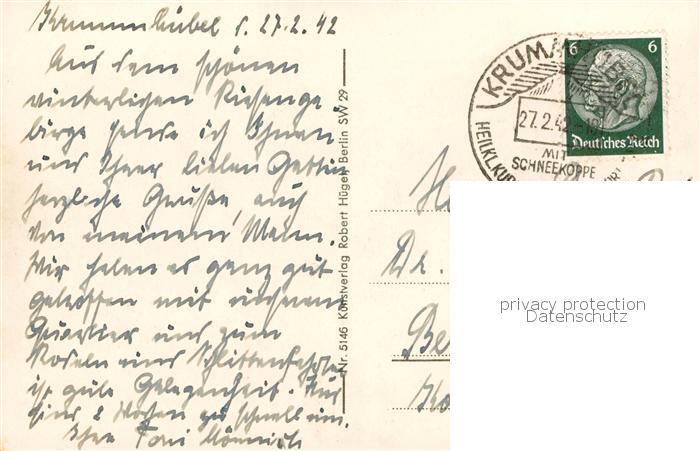 Krummhübel d. 27.2.42
Aus dem schönen
winterlichen Riesenge
birge sende ich Ihnen
und Ihrer lieben Gattin
herzliche Grüße, auch
von meinem Mann.
Wir haben es ganz gut
getroffen mit unserem
Quartier und zum
Rodeln und Schlittenfahrten
ist gute Gelegenheit. Nur
sind 2 Wochen zu schnell um.
Ihre Toni
Nr. 5146 Kunstverlag Robert Hügel, Berlin SW 29
KRUMMHÜBEL
27.2.42
MIT
SCHNEEKOPPE
6 6
Deutsches Reich
Dr.
Be
privacy protection
Datenschutz